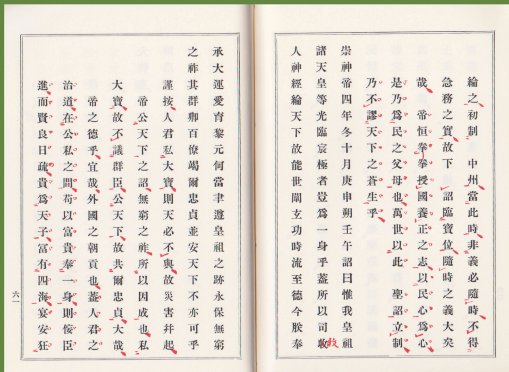 綸之初制　中州當此時非義必隨時不得
急務之實故下　詔臨寶位隨時之義大矣
哉　帝恒拳拳授國養正之志以民心爲心
是乃爲民之父母也萬世以此　聖詔立制
乃不謬天下之蒼生乎
崇神帝四年冬十月庚申朔壬午詔曰惟我皇祖
諸天皇等光臨宸極者豈爲一身乎蓋所以司牧
人神經綸天下故能世闡玄功時流至德今朕奉
承大運愛育黎元何當聿遵皇祖之跡永保無窮
之祚其群卿百僚竭爾忠貞並安天下不亦可乎
謹按人君私大寶則天必不與故災害幷起
帝公天下之詔無窮之祚所以因成也私
大寶故不議群臣公天下故共爾忠貞大哉
帝之德乎宜哉外國之朝貢也蓋人君之
治道在公私之間苟以富貴奉一身則佞臣
進而賢良日疏貴爲天子富有四海宴安狂
六一